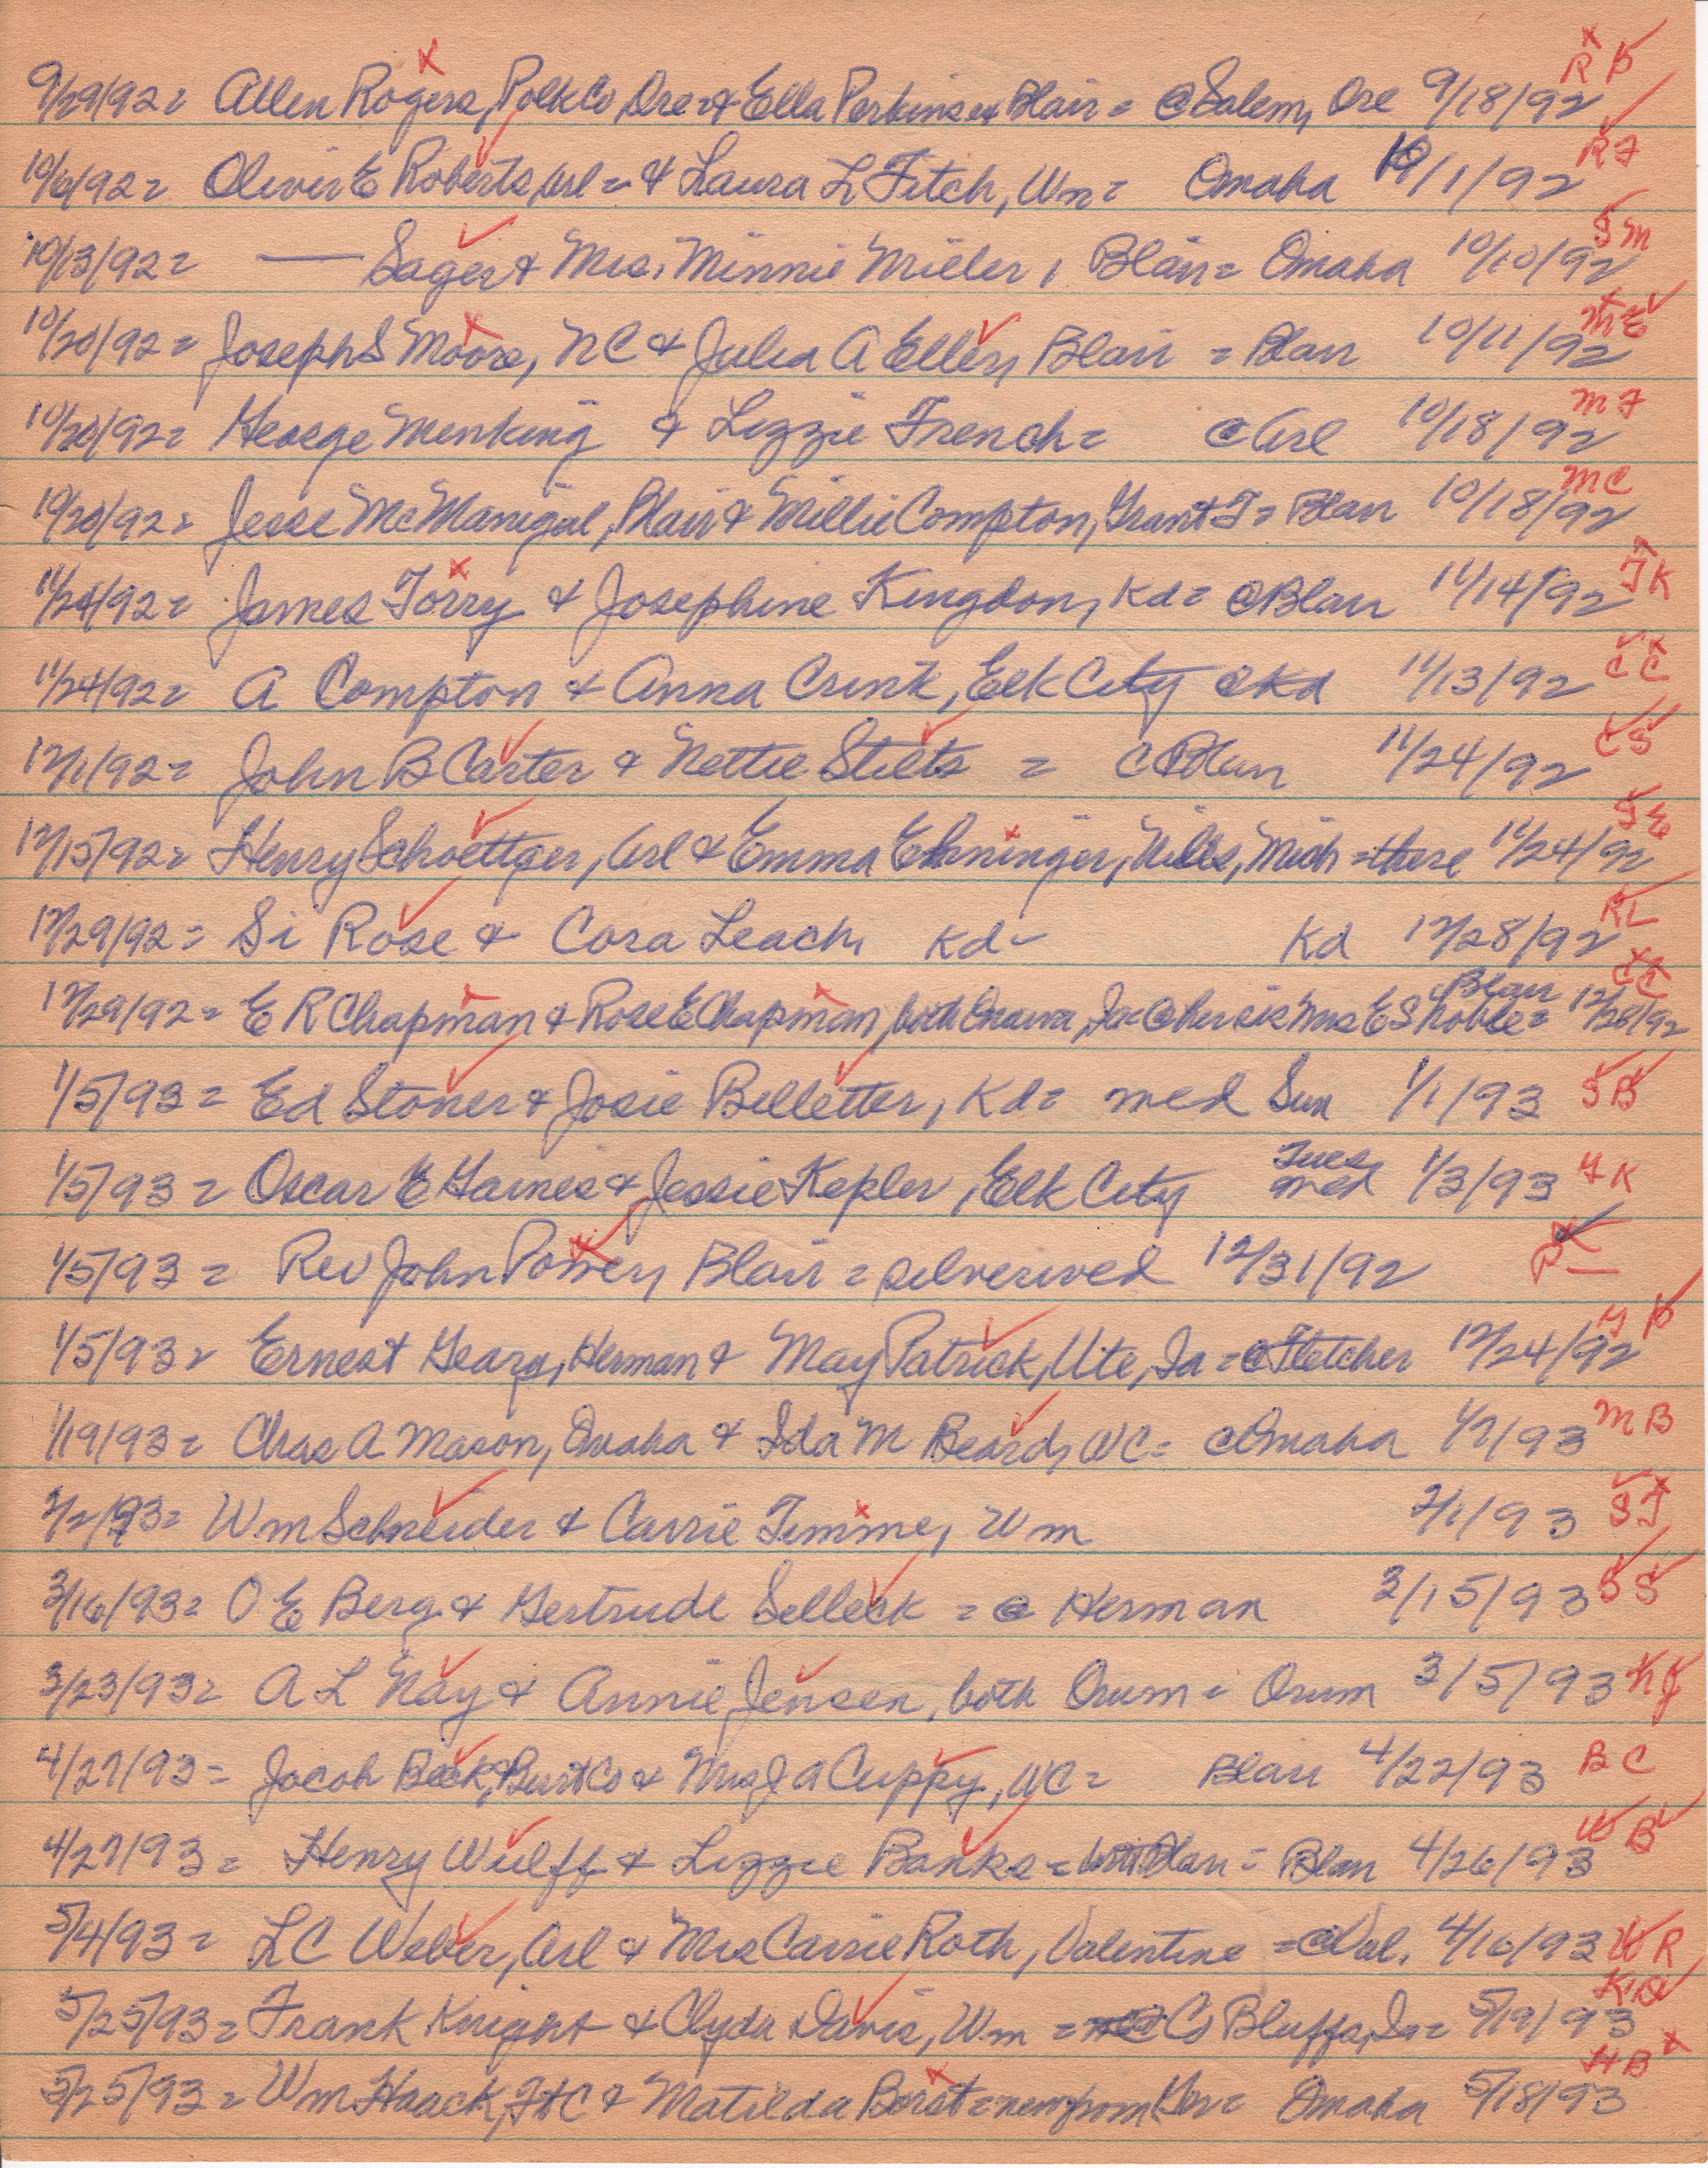 9/29/92 = Allen Rogers, Polk Co, Ore = & Ella Perkins ex Blair = @ Salem, Ore 9/18/92 R P
10/6/92 = Oliver E Roberts, Arl = & Laura L Fitch, Wn = Omaha 10/1/92 R F
10/13/92 = —— Sager & Mrs. Minnie Miller, Blair = Omaha 10/10/92 S M
10/20/92 = Joseph S Moore, NC & Julia A Ellen, Blair = Blair 10/11/92 M E
10/20/92 = George Menking & Lizzie French = @ Arl 10/18/92 M F
10/20/92 = Jesse McManigal, Blair & Millie Compton, Grant T = Blair 10/18/92 M C
11/24/92 = James Torry & Josephine Kingdon, Kd = @ Blair 11/14/92 T K
11/24/92 = A Compton & Anna Crink, Elk City @ Kd 11/13/92 C C
12/1/92 = John B Carter & Nettie Stilts = @ Blair 11/24/92 C S
12/15/92 = Henry Schoettger, Arl & Emma Ehninger, Niles, Mich = there 11/24/92 S E
12/29/92 = Si Rose & Cora Leach, Kd = Kd 12/28/92 R L
12/29/92 = E R Chapman & Rose E Chapman, both Onawa, Ia = @ her sis Mrs E S Noble = Blair 12/28/92 C C
1/5/93 = Ed Stoner & Josie Belletter, Kd = med Sun 1/1/93 S B
1/5/93 = Oscar E Gaines & Jessie Kepler, Elk City Tues med 1/3/93 G K
1/5/93 = Rev John Power, Blair = silverwed 12/31/92 P —
1/5/93 = Ernest Geary, Herman & May Patrick, Ute, Ia = @ Fletcher 12/24/92 G P
1/19/93 = Chas A Mason, Omaha & Ida M Beard, WC = @ Omaha 1/7/93 M B
2/2/93 = Wm Schneider & Carrie Timme, Wm 2/1/93 S T
3/16/93 = O E Berg & Gertrude Selleck = @ Herman 3/15/93 S S
3/23/93 = A L Nay & Annie Jensen, both Orum = Orum 3/5/93 N J
4/27/93 = Jacob Beck, Burt Co & Mrs J A Cuppy, WC = Blair 4/22/93 B C
4/27/93 = Henry Wulff & Lizzie Banks = both Blair = Blair 4/26/93 W B
5/4/93 = L C Weber, Arl & Mrs Carrie Roth, Valentine = @ Val. 4/16/93 W R
5/25/93 = Frank Knight & Clyda Davis, Wm = Co Bluffs, Ia = 5/19/93 K D
5/25/93 = Wm Haack, Ft C & Matilda Borst = new from Ger = Omaha 5/18/93 H B